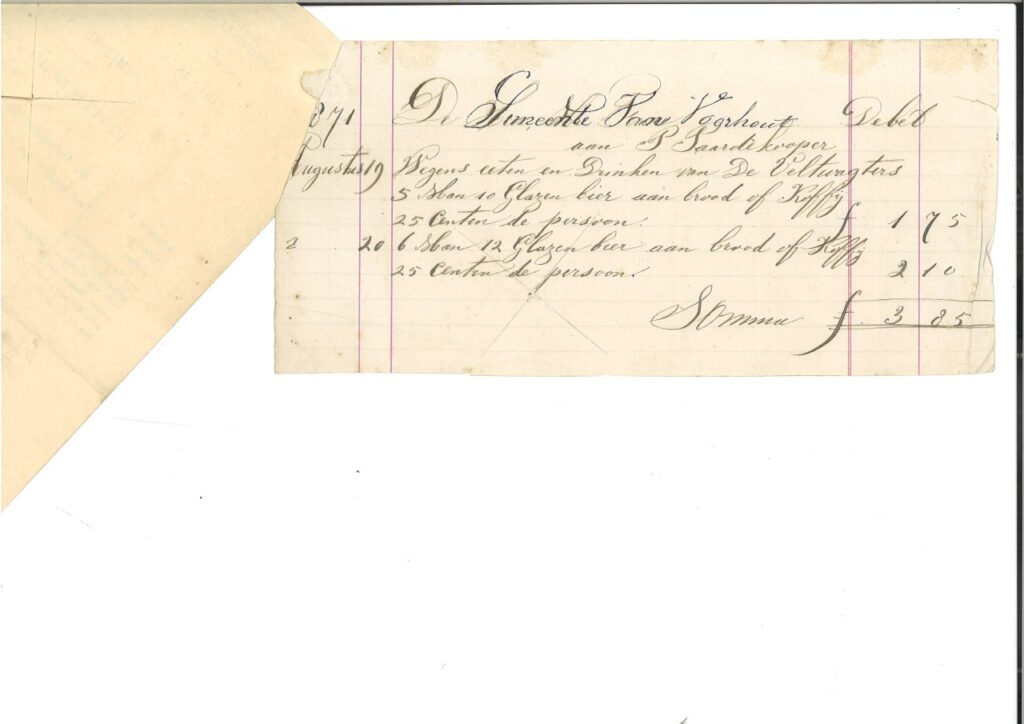 871 De Gemeente Van Voorhout Debet
aan P Paardekooper
Augustus 19 Wegens eeten en Drinken van De Veltwagters
5 Man 10 Glazen bier aan brood of Koffij
25 Centen de persoon. f 1 75
2 20 6 Man 12 Glazen bier aan brood of Koffij
25 Centen de persoon. 2 10
Somma f 3 85